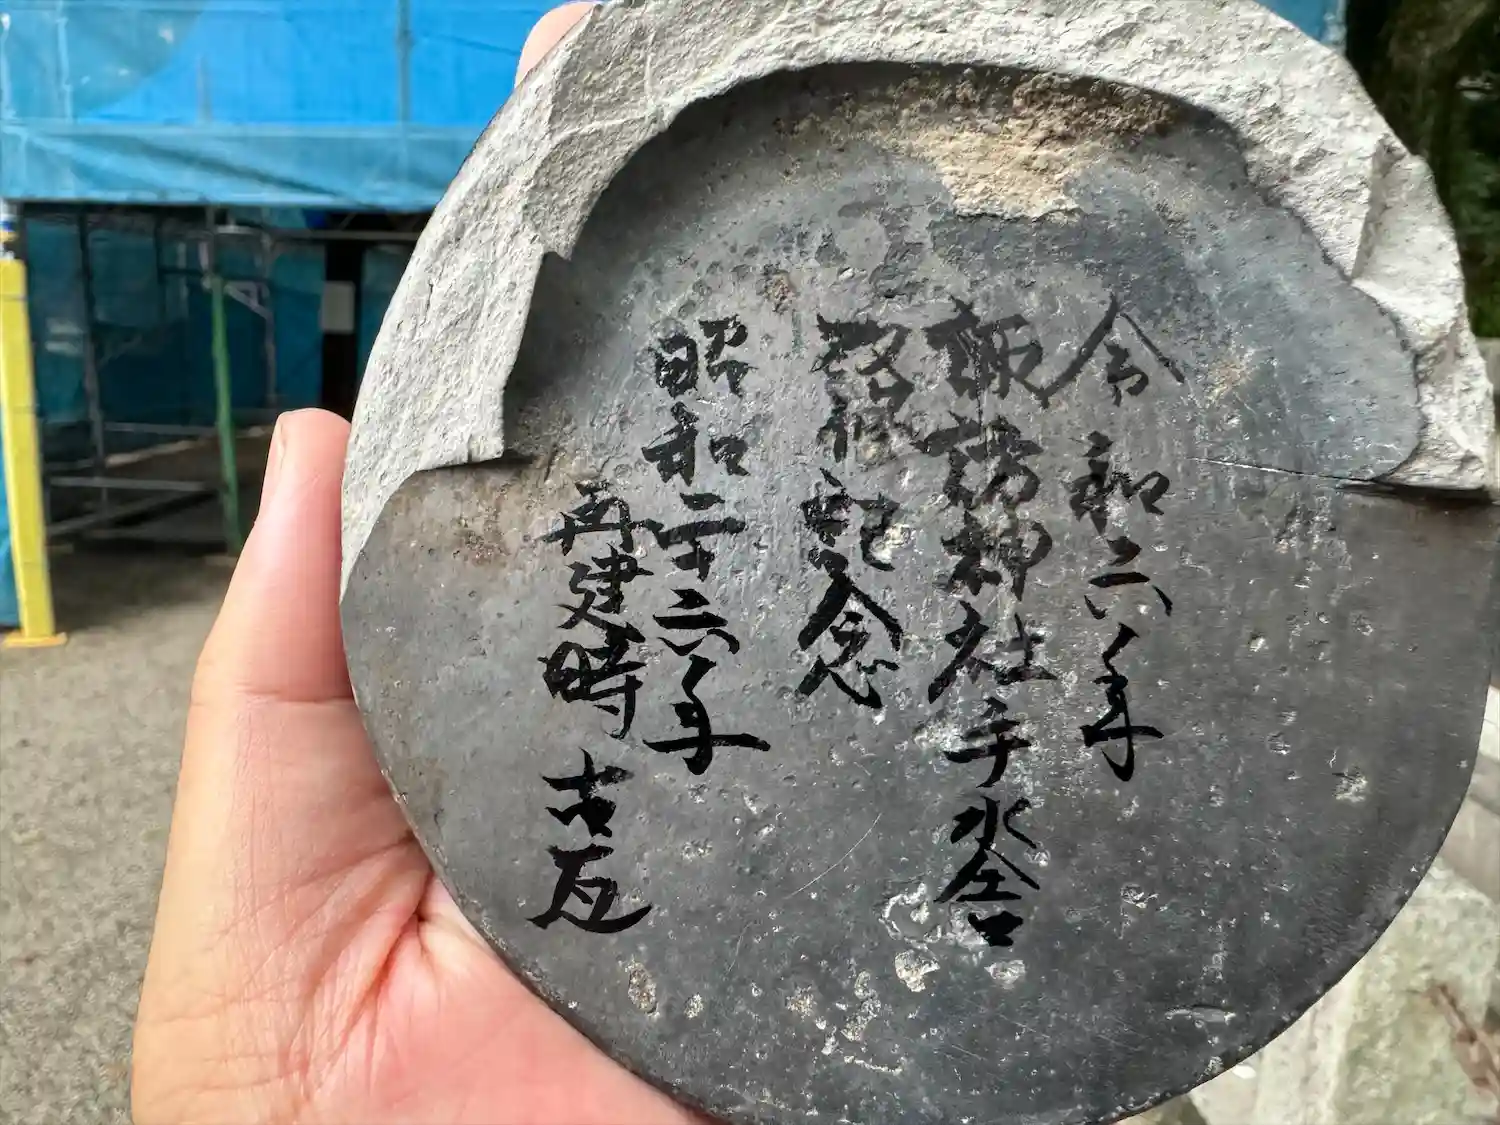 令和六年
諏訪神社手水舎
改修記念
昭和二十六年
再建時 古瓦